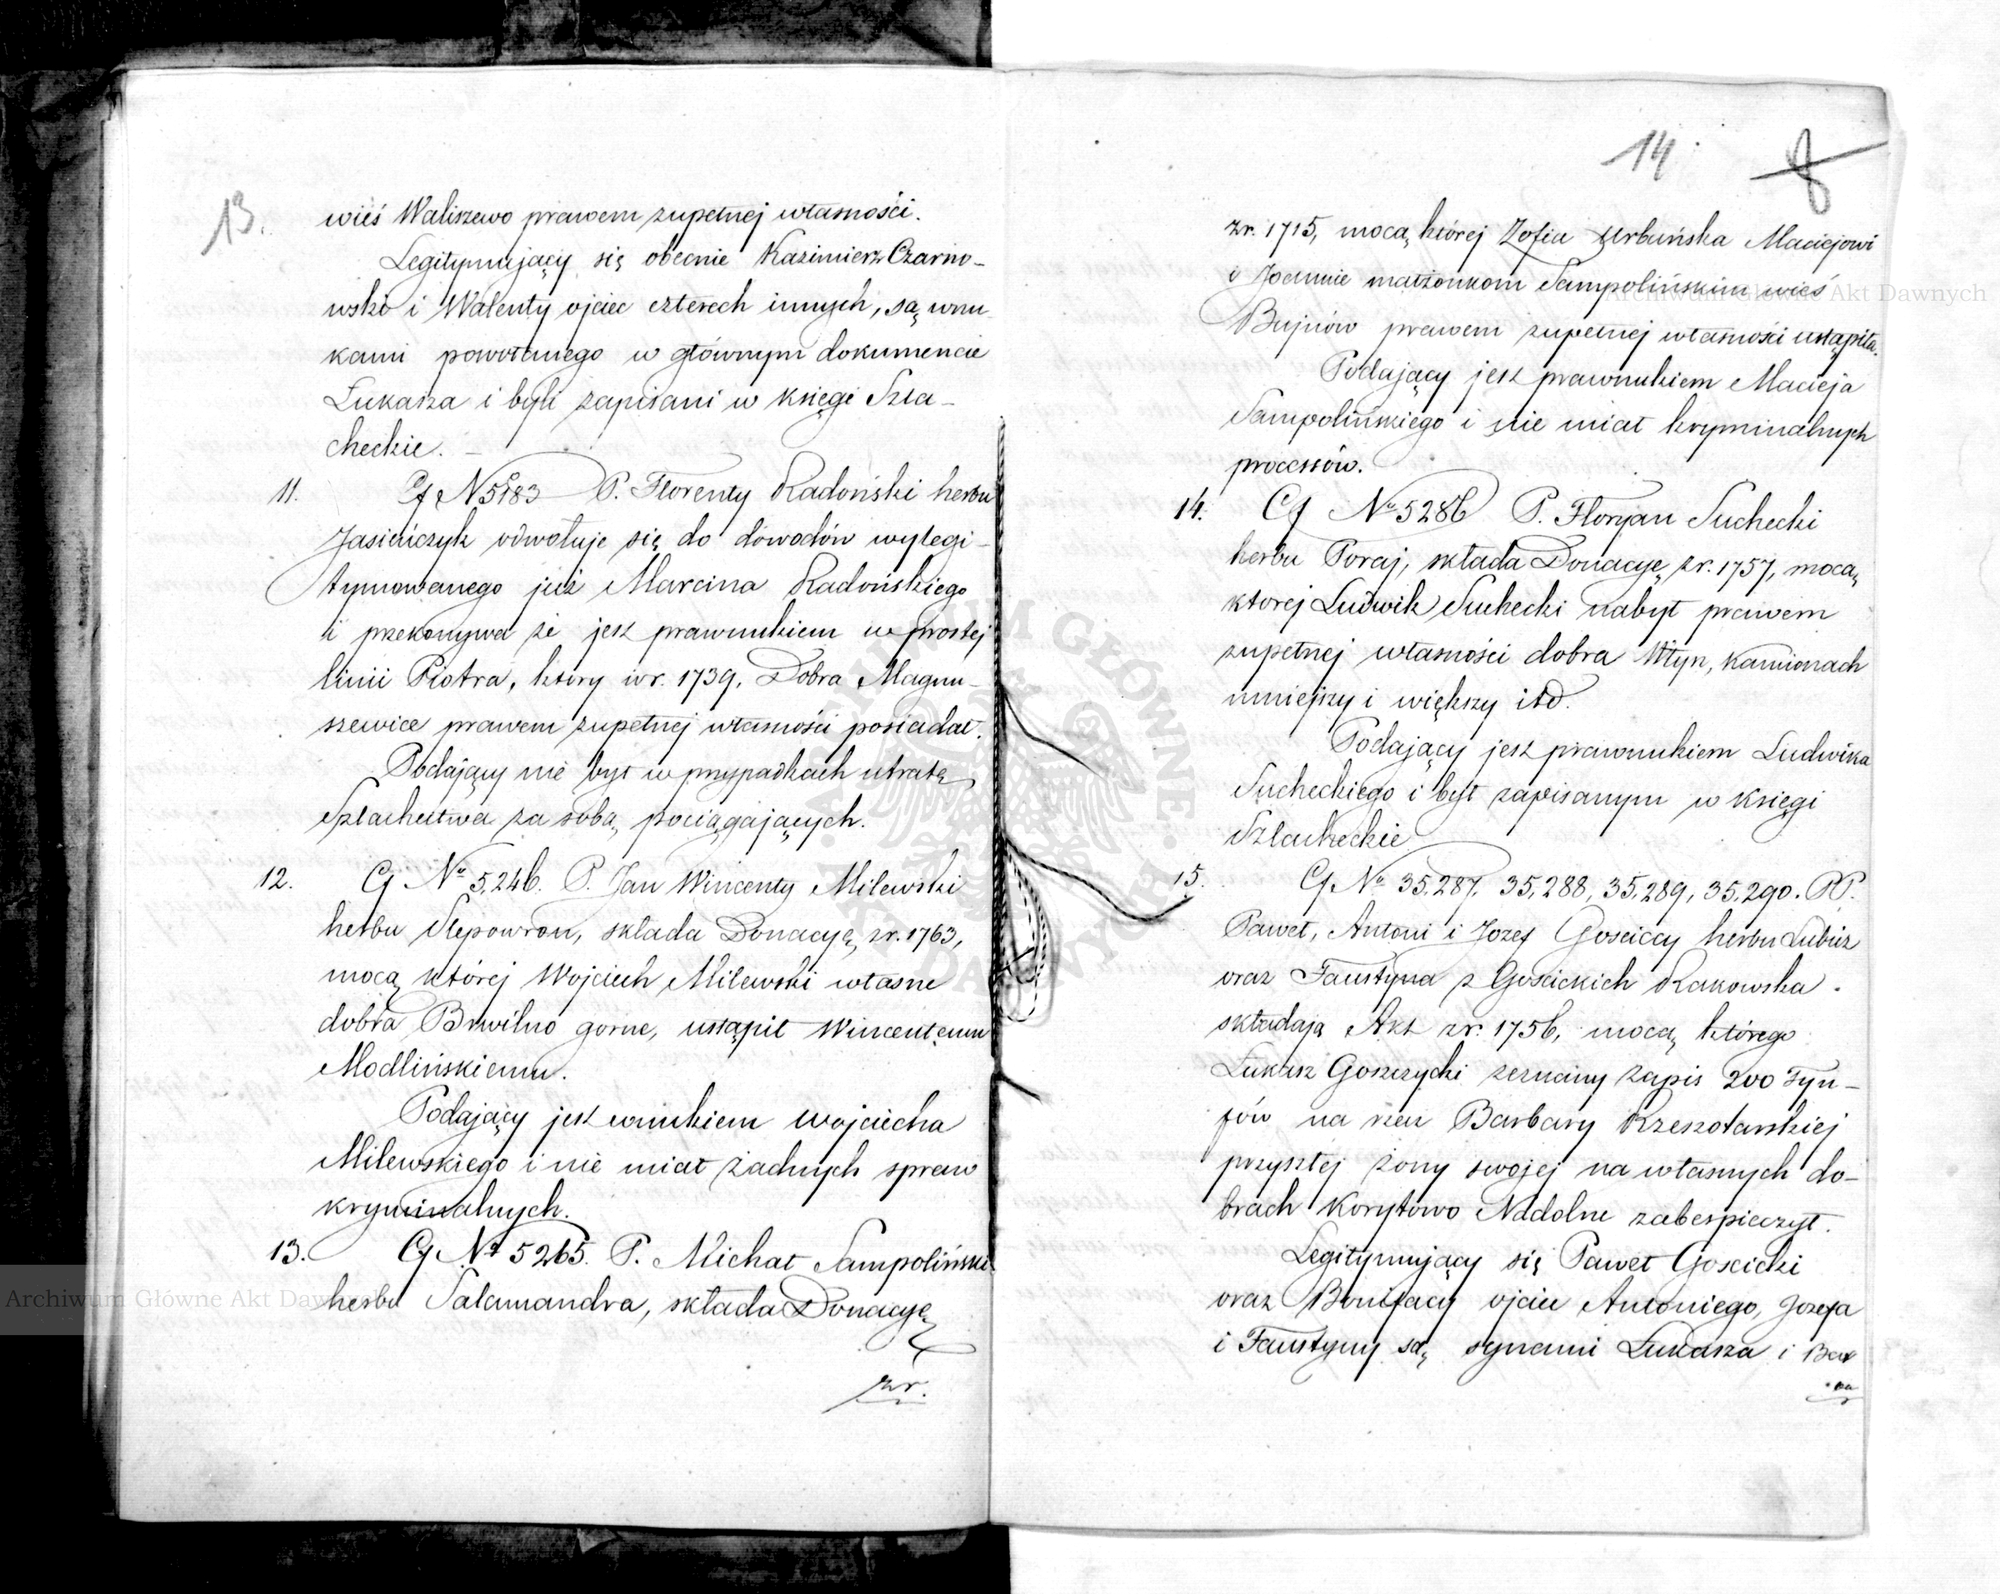 13.
wieś Waliszewo prawem zupełnej własności.
Legitymujący się obecnie Kazimierz Czarno-
wski i Walenty ojciec czterech innych, są wnu
kami powołanego w głównym dokumencie
Łukasza i byli zapisani w księgi Szla-
checkie. -
11. Cf No 5183 P. Florenty Radoński herbu
Jasieńczyk odwołuje się do dowodów wylegi-
tymowanego już Marcina Radońskiego
i przekonywa że jest prawnukiem w prostej
linii Piotra, który w r. 1739, Dobra Magnu-
szewice prawem zupełnej własności posiadał.
Podający nie był w przypadkach utratę
Szlachectwa za sobą pociągających.
12. Cf No 5,246. P. Jan Wincenty Milewski
herbu Slepowron, składa Donacyę zr. 1763,
mocą której Wojciech Milewski własne
dobra Brwilno gorne, ustąpił Wincentemu
Modlińskiemu.
Podający jest wnukiem Wojciecha
Milewskiego i nie miał żadnych spraw
kryminalnych.
13. Cf No 5265. P. Michał Sampoliński
herbu Salamandra, składa Donacyę
zr.
14 8
zr. 1715, mocą której Zofia Urbańska Maciejowi
i Joannie małżonkom Sampolińskim wieś
Bujnów prawem zupełnej własności ustąpiła.
Podający jest prawnukiem Macieja
Sampolińskiego i nie miał kryminalnych
processów.
14. Cf No 5286 P. Floryan Suchecki
herbu Poraj, składa Donacyę zr. 1757, mocą
ktorej Ludwik Suchecki nabył prawem
zupełnej własności dobra Młyn, Kamionach
mniejszy i większy itd.
Podający jest prawnukiem Ludwika
Sucheckiego i był zapisanym w księgi
Szlacheckie
15. Cf No 35,287, 35,288, 35,289, 35,290. PP.
Paweł, Antoni i Jozef Gosciccy herbu Lubicz
oraz Faustyna z Gościckich Rakowska.
składają Akt zr. 1756, mocą którego
Łukasz Goszczycki zeznany zapis 200 Tyn-
fów na rzecz Barbary Rzeszotarskiej
przyszłej żony swojej na własnych do-
brach Korytowo Nadolne zabespieczył.
Legitymujący się Paweł Goscicki
oraz Bonifacy ojciec Antoniego, Jozefa
i Faustyny są synami Łukasza i Bar
ARCHIWUM GŁÓWNE AKT DAWNYCH
Archiwum Główne Akt Dawnych
Archiwum Główne Akt Dawnych